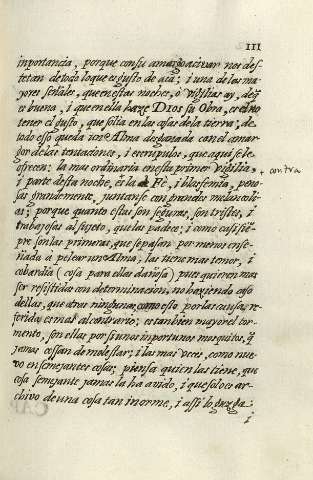 111
importancia, porque con su amargo acivar nos des-
tetan de todo lo que es gusto de acá; i una de las ma-
yores señales, que en estas noches, ò vigilias ay, de q̃
es buena, i que en ella haze Dios su Obra, es el no
tener el gusto, que solia en las cosas de la tierra; de
todo esso queda una Alma desganada con el amar-
gor de las tentaciones, i escrupulos, que aqui se le
ofrecen: la mas ordinaria en esta primer vigilia,
contra
i parte desta noche, es la Fè, i blasfemia, peno-
sas grandemente, juntanse con grandes melancoli-
as; porque quanto estas son seguras, son tristes, i
trabajosas al sujeto, que las padece; i como casi siẽ-
pre son las primeras, que se passan por menos ense-
ñada à pelear una Alma; las tiene mas temor, i
cobardia (cosa para ellas dañosa) pues quieren mas
ser resistidas con determinacion, no haziendo caso
dellas, que otras ningunas, como esto, por las causas re-
feridas es mas al contrario; es tambien mayor el tor-
mento, son ellas por si unos inportunos mosquitos, q̃
jamas cessan de molestar; i las mas veces, como nue-
vo en semejantes cosas, piensa quien las tiene, que
cosa semejante jamas la ha avido, i que solo es ar-
chivo de una cosa tan inorme, i assi lo juzga:
i